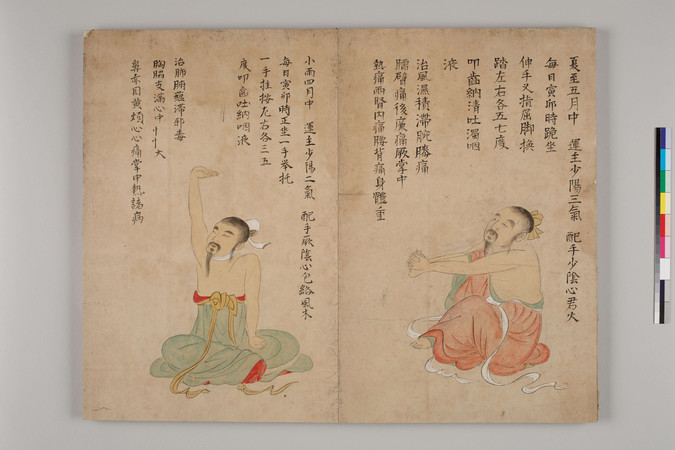 夏至五月中 運主少陽三氣 配手少陰心君火
每日寅卯時跪坐
伸手叉指屈脚換
踏左右各五七度
叩齒納清吐濁咽
液
治風濕積滯腕膝痛
臑臂痛後廉痛厥掌中
熱痛兩腎內痛腰背痛身體重
小滿四月中 運主少陽二氣 配手厥陰心包絡風木
每日寅卯時正坐一手举托
一手拄按左右各三五
度叩齒吐納咽液
治肺腑蘊滯邪毒
胸脇支滿心中忄忄大
鼻赤目黃煩心心痛掌中熱諸病